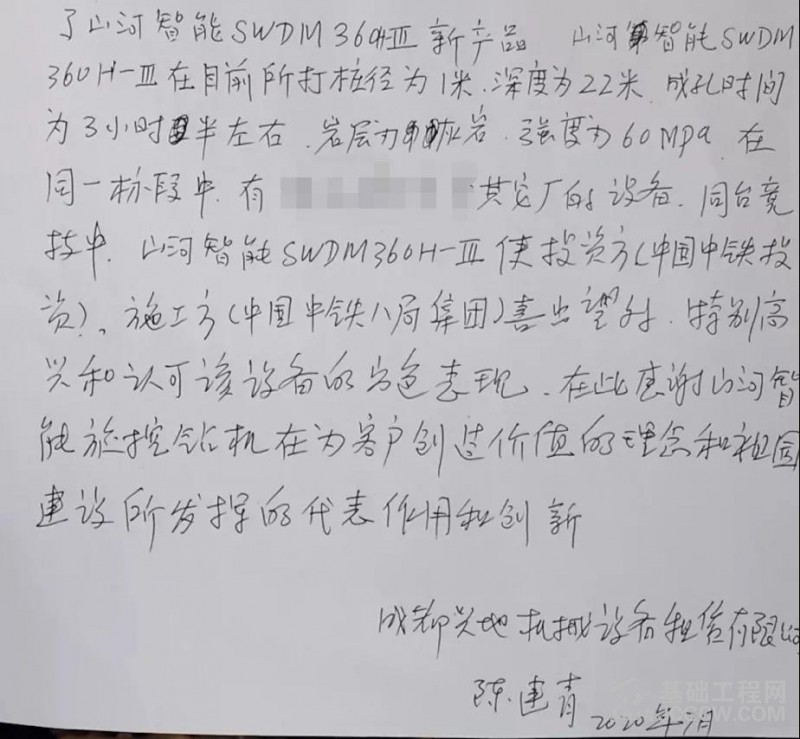 了山河智能SWDM360H-Ⅲ新产品 山河智能SWDM
360H-Ⅲ在目前所打桩径为1米.深度为22米.成孔时间
为3小时半左右.岩层为灰岩.强度为60MPa.在
同一标段中.有 其它厂的设备.同台竞
技中.山河智能SWDM360H-Ⅲ使投资方(中国中铁投
资)、施工方(中国中铁八局集团)喜出望外.特别高
兴和认可该设备的出色表现.在此感谢山河智
能旋挖钻机在为客户创造价值的理念和祖国
建设所发挥的代表作用和创新
成都兴地机械设备租赁有限公
陈建青
2020年7月
基础工程网